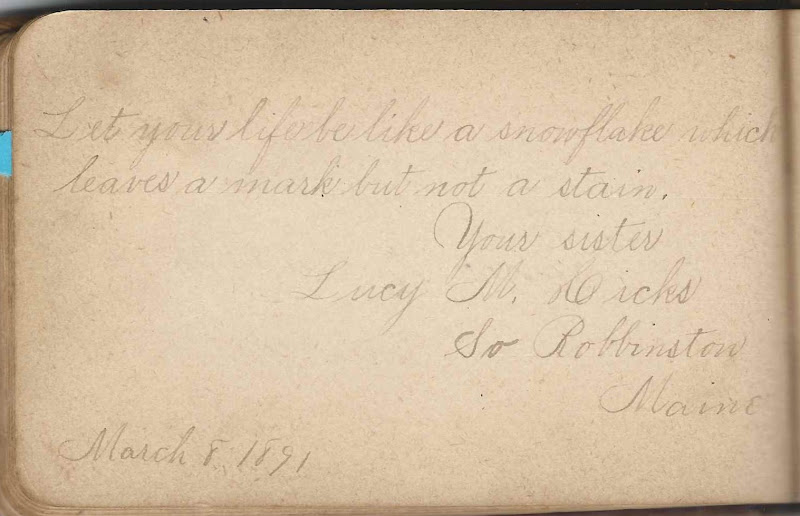 Let your life be like a snowflake which
leaves a mark but not a stain.
Your sister
Lucy M. Hicks
So Robbinston
Maine
March 8 1891